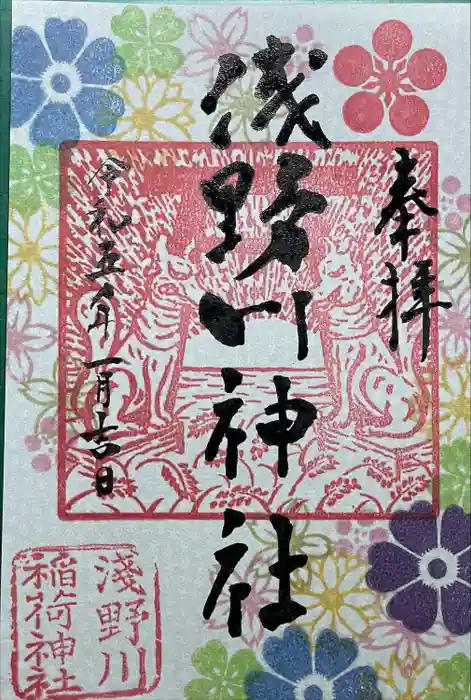 奉拝
浅野川神社
令和五年一月吉日
淺野川
稲荷神社